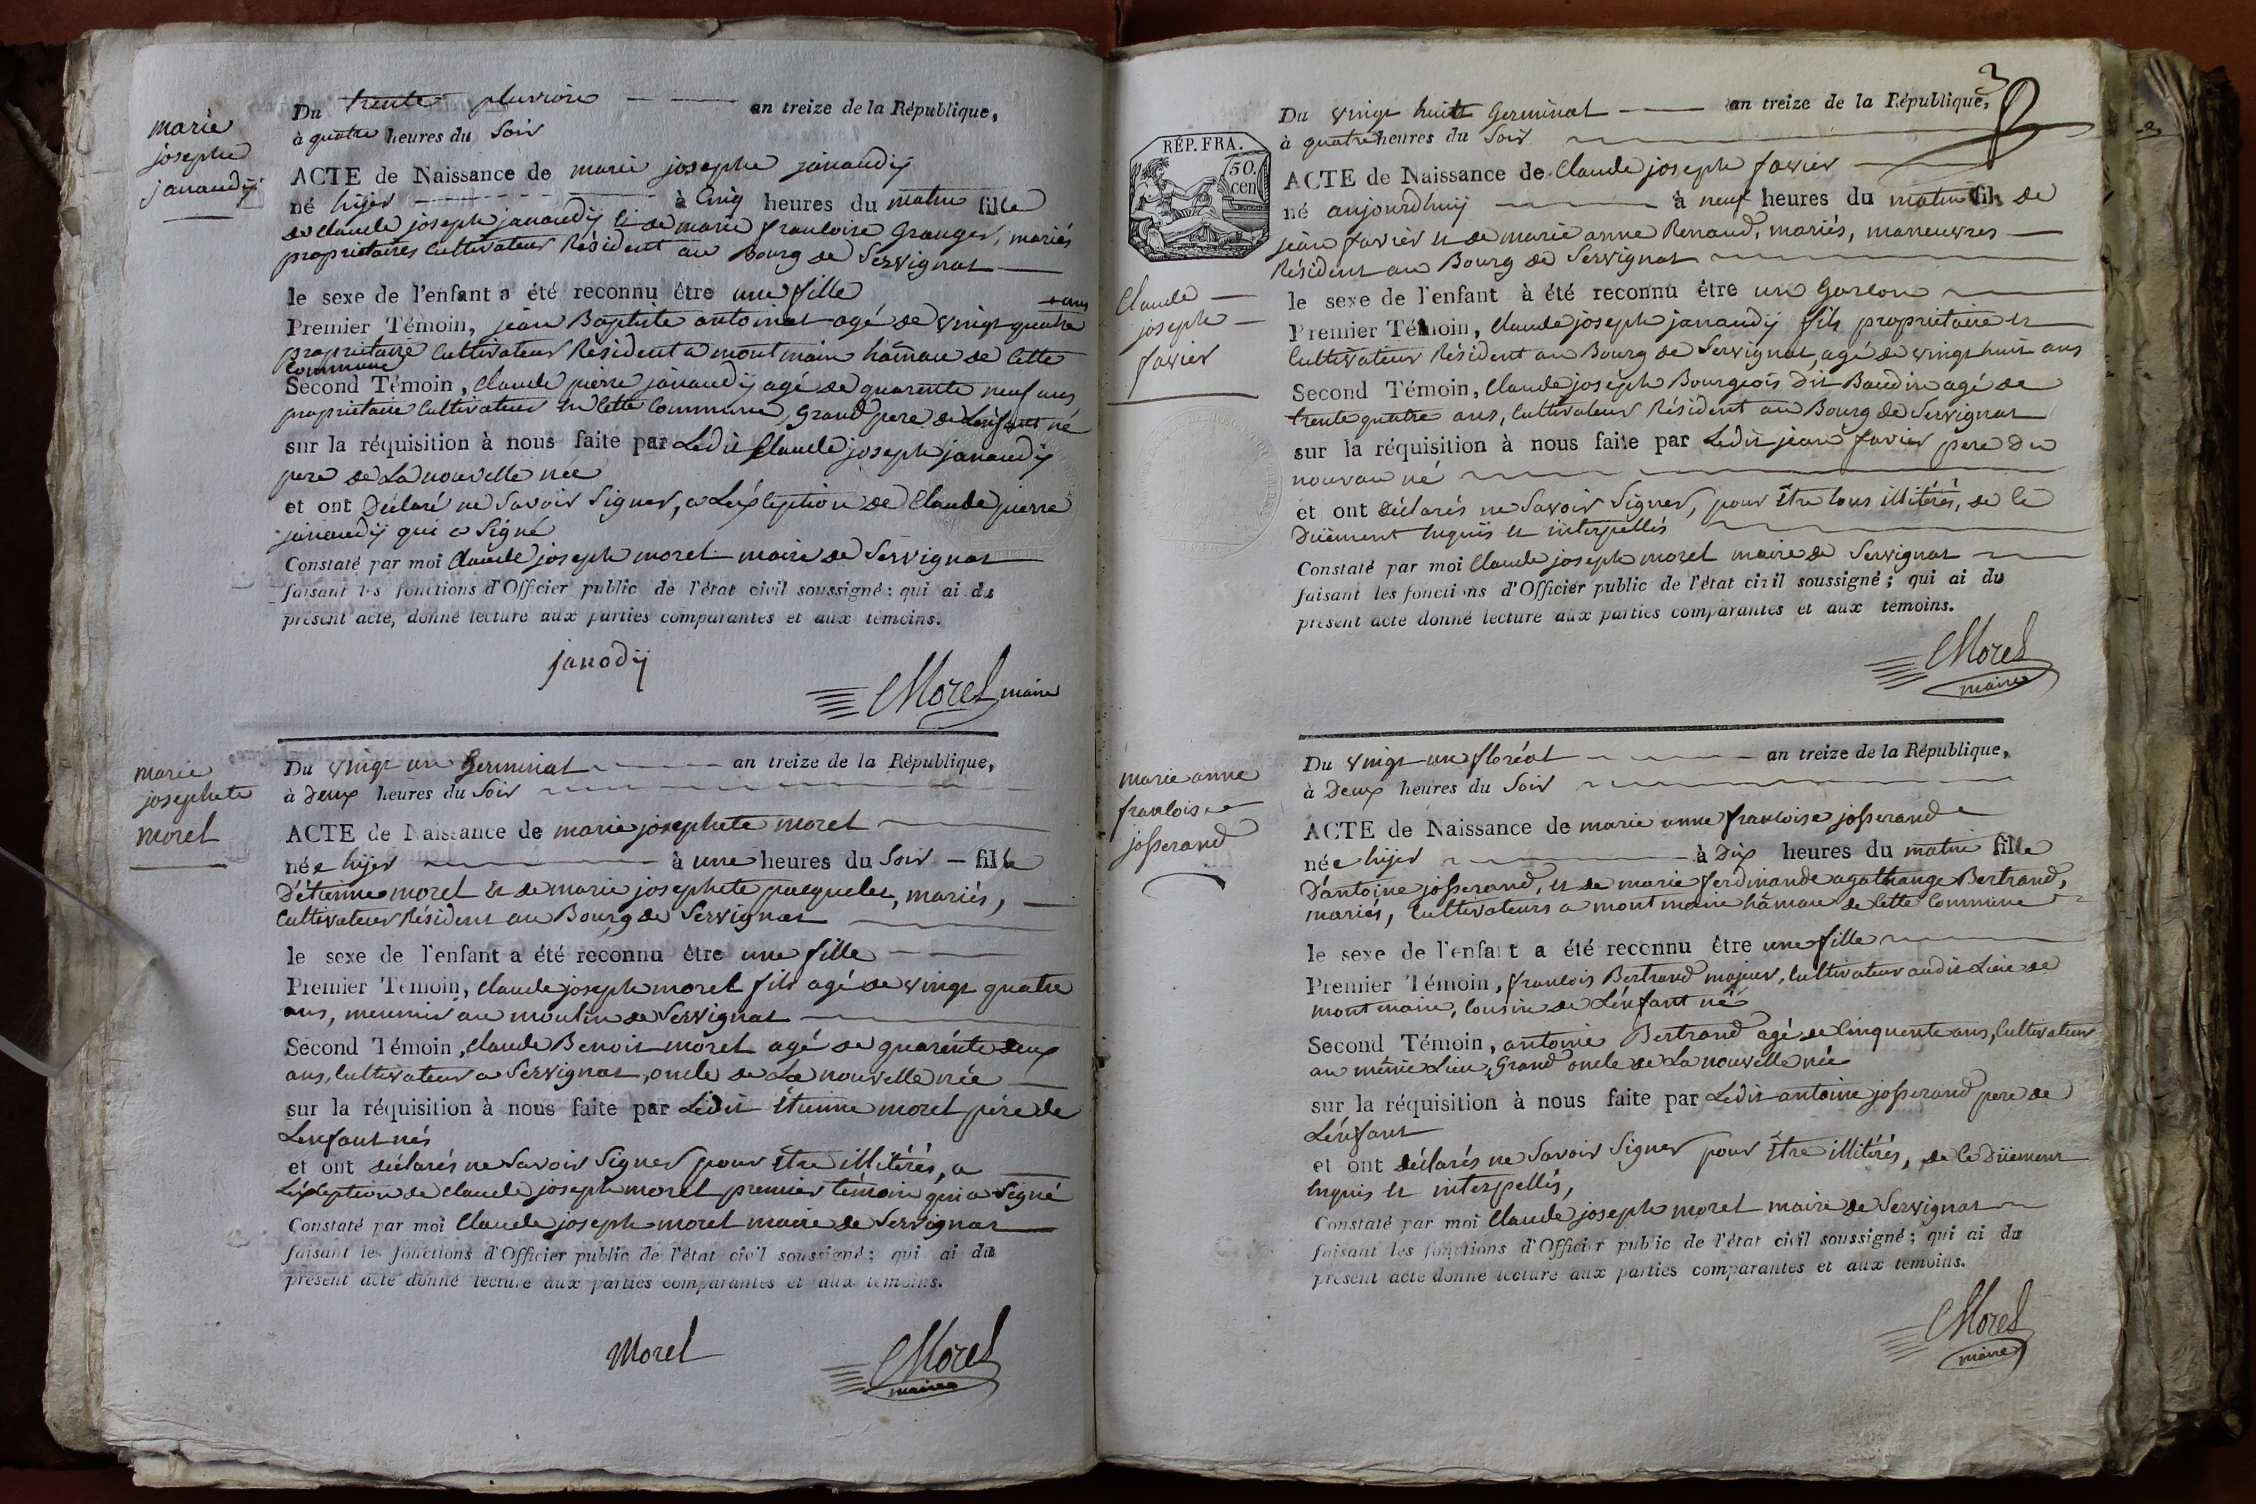 marie
josephe
janaudÿ
Du trente pluviose an treize de la République,
à quatre heures du Soir
ACTE de Naissance de marie josephe janaudij
né hijer à Cinq heures du matin fille
de claude joseph janaudij et de marie francoise Granger, mariés
proprietaires Cultivateur Résident au Bourg de Servignat
le sexe de l'enfant a été reconnu être une fille
ans
Premier Témoin, jean Baptiste antoinat agé de vingt quatre
proprietaire Cultivateur Résident a montmain hâmau de Cette
Commune
Second Témoin, Claude pierre janaudij agé de quarente neuf ans
proprietaire Cultivateur en Cette Commune, Grand pere de Lenfant né
sur la réquisition à nous faite par Ledit Claude joseph janaudij
pere de La nouvelle née
et ont Déclaré ne Savoir Signer, a Léxception de Claude pierre
janaudij qui a Signé
Constaté par moi Claude joseph morel maire de Servignat
faisant les fonctions d'Officier public de l'état civil soussigné; qui ai du
présent acte, donné lecture aux parties comparantes et aux témoins.
janodij
Morel maire
marie
josephete
morel
Du vingt un Germinal an treize de la République,
à Deux heures du Soir
ACTE de Naissance de marie josephete morel
née hijer à une heures du Soir fille
D'étienne morel et de marie josephete pacquelet, mariés,
Cultivateur Résident au Bourg de Servignat
le sexe de l'enfant a été reconnu être une fille
Premier Témoin, Claude joseph morel fils agé de vingt quatre
ans, meunier au moulin de Servignat
Second Témoin, Claude Benoit morel agé de quarénte deux
ans, Cultivateur a Servignat, oncle de La nouvelle née
sur la réquisition à nous faite par Ledit étienne morel père de
Lenfant nés
et ont déclarés ne Savoir Signer pour être illitérés, a
Léxception de Claude joseph morel premier témoin qui a Signé
Constaté par moi Claude joseph morel maire de Servignat
faisant les fonctions d'Officier public de l'état civil soussigné; qui ai du
présent acte donné lecture aux parties comparantes et aux témoins.
Morel
Morel
maire
3
RÉP. FRA.
50.
cen
Claude
joseph
favier
Du vingt huit Germinal an treize de la République,
à quatre heures du Soir
ACTE de Naissance de Claude joseph favier
né aujourdhuij à neuf heures du matin fils de
jean favier et de marie anne Renaud, mariés, maneuvres
Résident au Bourg de Servignat
le sexe de l'enfant à été reconnu être un Garcon
Premier Témoin, Claude joseph janaudij fils proprietaire et
Cultivateur Résident au Bourg de Servignat, agé de vingt huit ans
Second Témoin, Claude joseph Bourgeois dit Baudin agé de
trente quatre ans, Cultivateur Résident au Bourg de Servignat
sur la réquisition à nous faite par Ledit jean favier pere du
nouveau né
et ont déclarés ne Savoir Signer, pour être tous illitérés, de Ce
Duëment enquis et interpellés
Constaté par moi Claude joseph morel maire de Servignat
faisant les fonctions d'Officier public de l'état civil soussigné; qui ai du
présent acte donné lecture aux parties comparantes et aux témoins.
Morel
maire
marie anne
francoise
josserand
Du vingt un floréal an treize de la République,
à Deux heures du Soir
ACTE de Naissance de marie anne francoise josserand
née hijer à Dix heures du matin fille
D'antoine josserand, et de marie ferdinande agathange Bertrand,
mariés, Cultivateurs a montmain hâmau de Cette Commune
le sexe de l'enfant a été reconnu être une fille
Premier Témoin, francois Bertrand majeur, Cultivateur audit Lieu de
montmain, Cousin de Lénfant né
Second Témoin, antoine Bertrand agé de Cinquente ans, Cultivateur
au même Lieu, Grand oncle de La nouvelle née
sur la réquisition à nous faite par Ledit antoine josserand pere de
Lénfant
et ont déclarés ne Savoir Signer pour être illitérés, de Ce Duëment
enquis et interpellés,
Constaté par moi Claude joseph morel maire de Servignat
faisant les fonctions d'Officier public de l'état civil soussigné; qui ai du
présent acte donné lecture aux parties comparantes et aux témoins.
Morel
maire